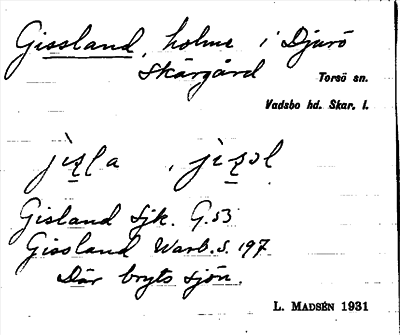 Gissland, holme i Djurö
skärgård
Torsö sn.
Vadsbo hd. Skar. l.
Gisland Sjk. G.53
Gissland Warb. s. 197
Där bryts sjön.
L. MADSÉN 1931